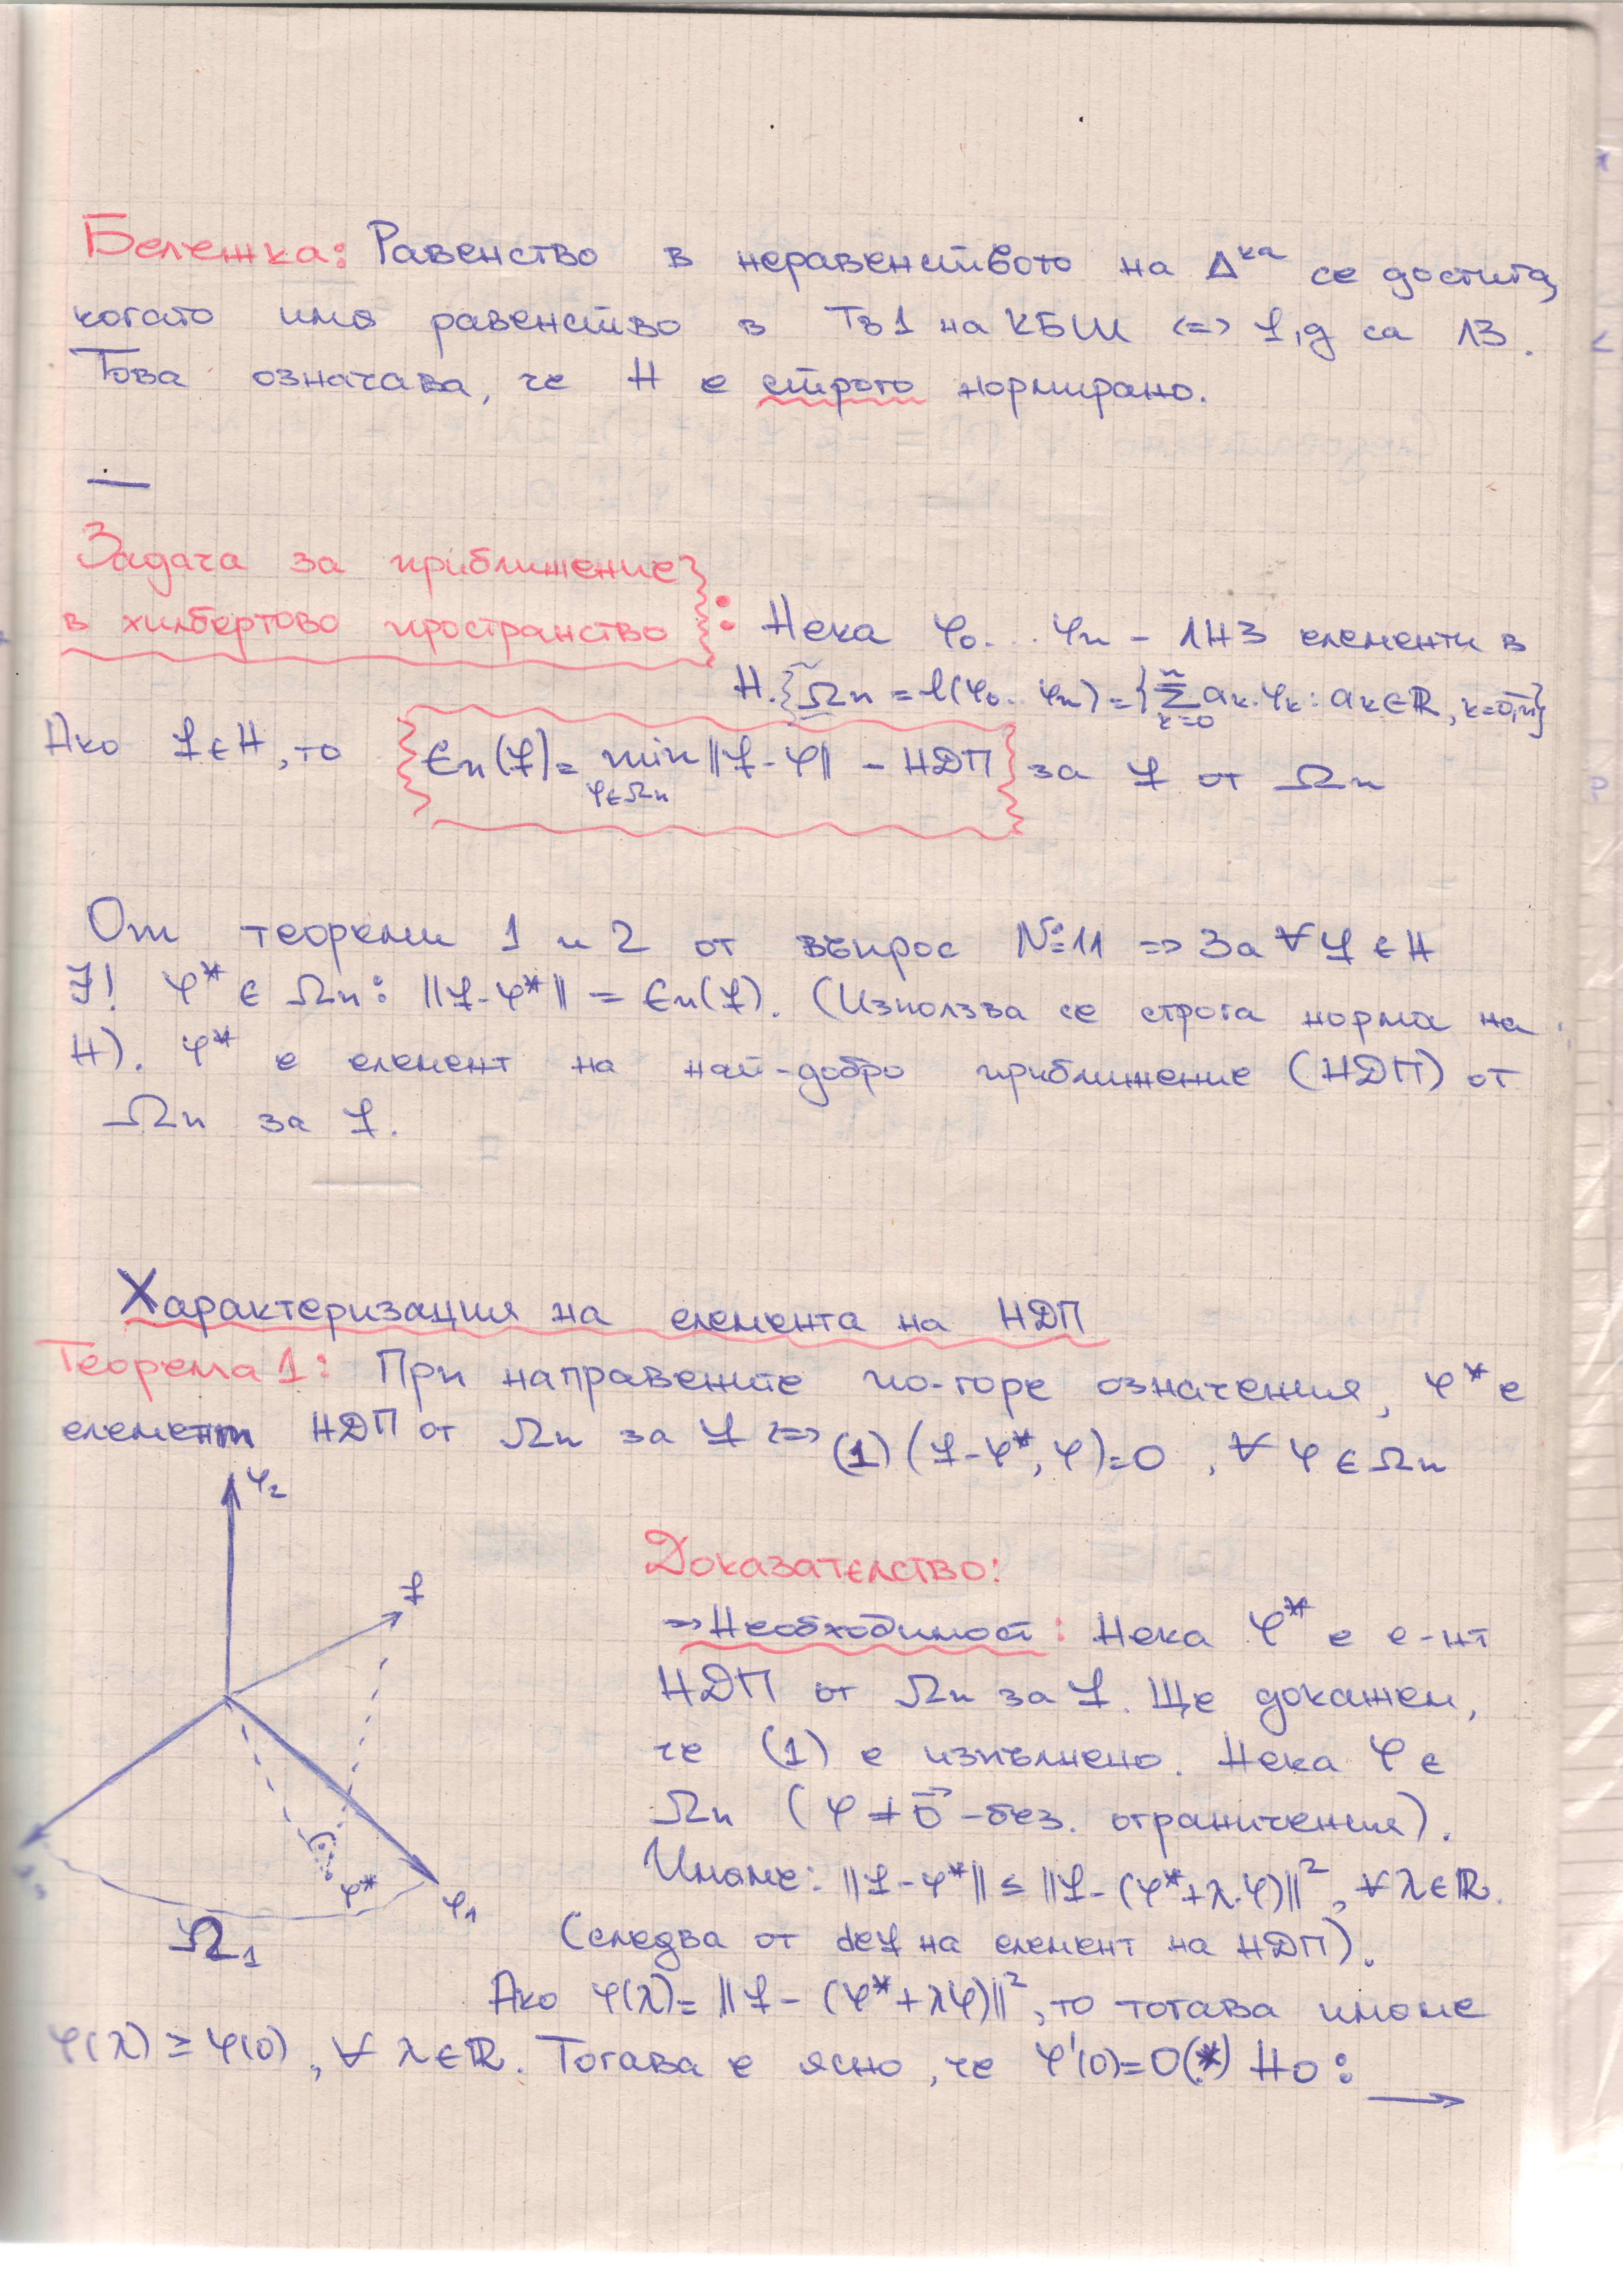 Бележка: Равенство в неравенството на Δка се достига,
когато има равенство в Тв1 на КБШ <=> f,g са ЛЗ.
Това означава, че H е строго нормирано.
Задача за приближение
в хилбертово пространство : Нека φ0...φn - ЛНЗ елементи в
H. {Ωn = l(φ0...φn) = {∑_{k=0}^{n} ak.φk : ak∈ℝ, k=0,n}
Ако f∈H, то En(f) = min_{φ∈Ωn} ||f-φ|| - НДП за f от Ωn
От теореми 1 и 2 от въпрос №11 => За ∀f∈H
∃! φ*∈Ωn: ||f-φ*|| = En(f). (Използва се строга норма на
H). φ* е елемент на най-добро приближение (НДП) от
Ωn за f.
Характеризация на елемента на НДП
Теорема 1: При направените по-горе означения, φ* е
елемент НДП от Ωn за f <=> (1) (f-φ*, φ)=0 , ∀ φ∈Ωn
φ2
f
φ*
φ1
Ω1
Доказателство:
=> Необходимост: Нека φ* е е-нт
НДП от Ωn за f. Ще докажем,
че (1) е изпълнено. Нека φ∈
Ωn (φ≠0⃗ - без. ограничения).
Имаме: ||f-φ*|| ≤ ||f-(φ*+λ.φ)||², ∀λ∈ℝ.
(следва от def на елемент на НДП).
Ако φ(λ)= ||f - (φ*+λφ)||², то тогава имаме
φ(λ) ≥ φ(0), ∀ λ∈ℝ. Тогава е ясно, че φ'(0)=0(*) Но: →